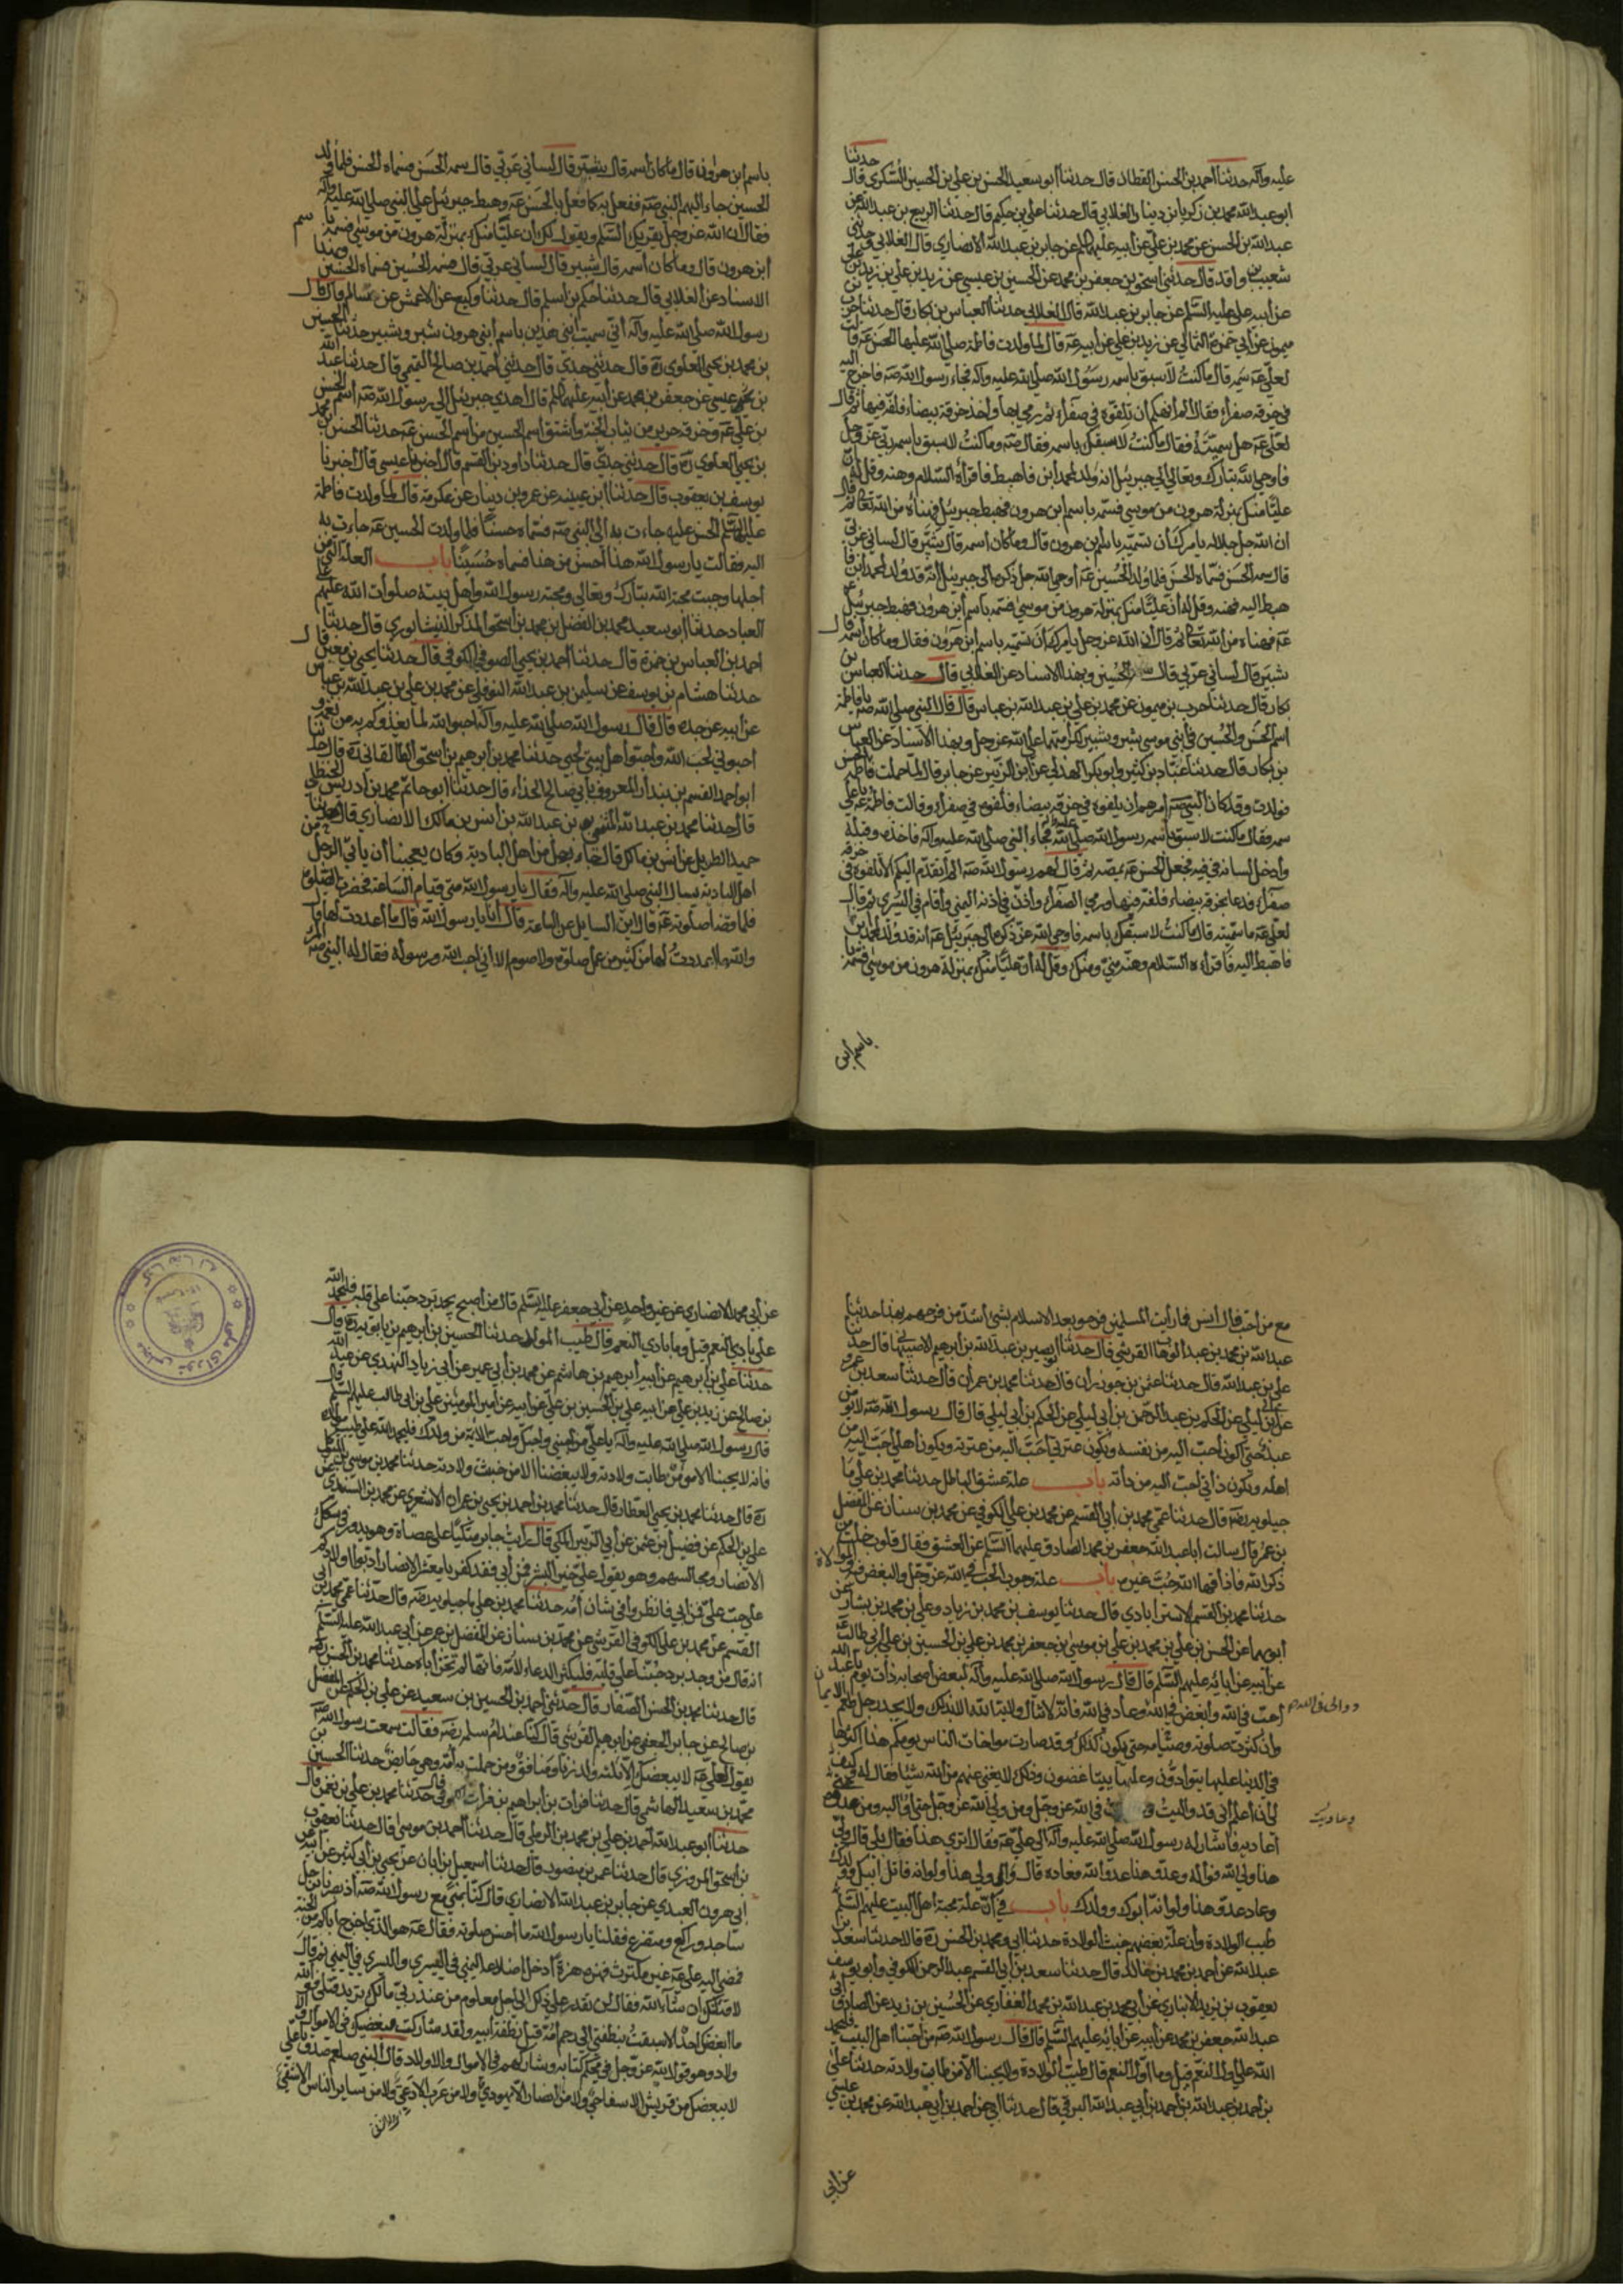 حدثنا
عليه وآله حدثنا أحمد بن الحسن القطان قال حدثنا أبو سعيد الحسن بن علي بن الحسين السكري قال
أبو عبد الله محمد بن زكريا بن دينار الغلابي قال حدثنا علي بن حكيم قال حدثنا الربيع بن عبد الله عن
عبد الله بن الحسن عن محمد بن علي عن أبيه عليهما عن جابر بن عبد الله الأنصاري قال الغلابي
شعيب بن واقد قال حدثني إسحق بن جعفر بن محمد عن الحسين بن عيسى عن زيد بن علي
عن أبيه علي عليه السلام عن جابر بن عبد الله قال الغلابي حدثنا العباس بن بكار قال حدثنا حرب بن
ميمون عن أبي حمزة الثمالي عن زيد بن علي عن أبيه عه قال لما ولدت فاطمة صلى الله عليها الحسن عه قالت
لعلي عه سمه قال ما كنت لأسبق باسمه رسول الله صلى الله عليه وآله فجاء رسول الله صه فاخرج إليه
في خرقة صفراء فقال ألم أنهكم أن تلفوه في صفراء ثم رمى بها وأخذ خرقة بيضاء فلفه فيها ثم قال
لعلي عه هل سميته فقال ما كنت لأسبقك باسمه فقال صه وما كنت لأسبق باسمه ربي عز وجل
فأوحى الله تبارك وتعالى إلى جبرئيل أنه ولد لمحمد ابن فاهبط فاقرأه السلام وهنه وقل له إن
عليا منك بمنزلة هرون من موسى فسمه باسم ابن هرون فهبط جبرئيل فهناه من الله تعالى ثم قال
إن الله جل جلاله يأمرك أن تسميه باسم ابن هرون قال وما كان اسمه قال شبر قال لساني عربي
قال سمه الحسن فسماه الحسن فلما ولد الحسين عه أوحى الله جل ذكره إلى جبرئيل أنه قد ولد لمحمد ابن
هبط إليه فهنه وقل له إن عليا منك بمنزلة هرون من موسى فسمه باسم ابن هرون فهبط جبرئيل
عه فهناه من الله تعالى ثم قال إن الله عز وجل يأمرك أن تسميه باسم ابن هرون فقال وما كان اسمه قال
شبير قال لساني عربي قال الحسين وبهذا الاسناد عن الغلابي قال حدثنا العباس بن
بكار قال حدثنا حرب بن ميمون عن محمد بن علي بن عبد الله بن عباس قال قال النبي صلى الله عليه يا فاطمة
اسم الحسن والحسين في ابني موسى شبر وشبير لكرامتهما على الله عز وجل وبهذا الاسناد عن العباس
بن بكار قال حدثنا عباد بن كثير وأبو بكر الهذلي عن ابن الزبير عن جابر قال لما حملت فاطمة
فولدت وقد كان النبي صه أمرهم أن يلفوه في خرقة بيضاء فلفوه في صفراء وقالت فاطمة يا علي
سمه فقال ما كنت لأسبق باسمه رسول الله صلى الله فجاء النبي صلى الله عليه وآله فأخذه وقبله
وأدخل لسانه في فيه فجعل الحسن عه يمصه ثم قال لهم رسول الله صه ألم أتقدم إليكم ألا تلفوه في خرقة
صفراء فدعا بخرقة بيضاء فلفه فيها ورمى الصفراء وأذن في أذنه اليمنى وأقام في اليسرى ثم قال
لعلي عه ما سميته قال ما كنت لأسبقك باسمه فأوحى الله عز ذكره إلى جبرئيل عه أنه قد ولد لمحمد ابن
فاهبط إليه فاقرأه السلام وهنه مني ومنك وقل له إن عليا منك بمنزلة هرون من موسى فسمه
باسم ابن
باسم ابن هرون قال ما كان اسمه قال شبر قال لساني عربي قال سمه الحسن فسماه الحسن فلما ولد
الحسين جاء إليهم النبي صه ففعل به كما فعل بالحسن عه وهبط جبرئيل على النبي صلى الله عليه وآله
فقال إن الله عز وجل يقرئك السلم ويقول لك إن عليا منك بمنزلة هرون من موسى فسمه باسم
ابن هرون قال وما كان اسمه قال شبير قال لساني عربي قال فسمه الحسين فسماه الحسين وبهذا
الاسناد عن الغلابي قال حدثنا حكم بن أسلم قال حدثنا وكيع عن الأعمش عن سالم قال قال
رسول الله صلى الله عليه وآله إني سميت ابني هذين باسم ابني هرون شبر وشبير حدثنا الحسن
بن محمد بن يحيى العلوي ره قال حدثني جدي قال حدثني أحمد بن صالح التميمي قال حدثنا عبد الله
بن عيسى عن جعفر بن محمد عن أبيه عليهما قال أهدى جبرئيل إلى رسول الله صه اسم الحسن
بن علي عه وخرقة حرير من ثياب الجنة واشتق اسم الحسين من اسم الحسن عه حدثنا الحسن بن محمد
بن يحيى العلوي ره قال حدثني جدي قال حدثنا داود بن القسم قال أخبرنا عيسى قال أخبرنا
يوسف بن يعقوب قال حدثنا ابن عيينه عن عمرو بن دينار عن عكرمة قال لما ولدت فاطمة
عليها السلم الحسن عليه جاءت به إلى النبي صه فسماه حسنا فلما ولدت الحسين عه جاءت به
إليه فقالت يا رسول الله هذا أحسن من هذا فسماه حسينا باب العلة التي من
أجلها وجبت محبة الله تبارك وتعالى ومحبة رسول الله وأهل بيته صلوات الله عليهم على
العباد حدثنا أبو سعيد محمد بن الفضل بن محمد بن إسحق المذكر النيشابوري قال حدثنا
أحمد بن العباس بن حمزة قال حدثنا أحمد بن يحيى الصوفي الكوفي قال حدثنا يحيى بن معين قال
حدثنا هشام بن يوسف عن سليمن بن عبد الله النوفلي عن محمد بن علي بن عبد الله بن عباس
عن أبيه عن جده قال قال رسول الله صلى الله عليه وآله أحبوا الله لما يغذوكم به من نعمه و
أحبوني لحب الله وأحبوا أهل بيتي لحبي حدثنا محمد بن إبرهيم بن إسحق الطالقاني ره قال حدثنا
أبو أحمد القسم بن بندار المعروف بأبي صالح الحذاء قال حدثنا أبو حاتم محمد بن إدريس الحنظلي
قال حدثنا محمد بن عبد الله بن المثنى بن عبد الله بن أنس بن مالك الأنصاري قال حدثنا
حميد الطويل عن أنس بن مالك قال جاء رجل من أهل البادية وكان يعجبنا أن يأتي الرجل من
أهل البادية يسأل النبي صلى الله عليه وآله فقال يا رسول الله متى قيام الساعة فحضرت الصلوة
فلما قضى صلوته عه قال أين السايل عن الساعة قال أنا يا رسول الله قال ما أعددت لها قال
والله ما أعددت لها من كثير من عمل صلوة ولا صوم إلا أني أحب الله ورسوله فقال له النبي صه المرء
مع من أحب قال أنس فما رأيت المسلمين فرحوا بعد الإسلام بشئ أشد من فرحهم بهذا حدثنا
عبد الله بن محمد بن عبد الوهاب القرشي قال حدثنا أبو نصير بن عبد الله بن إبرهيم الإصبهاني قال حدثنا
علي بن عبد الله قال حدثنا عثمن بن خوذران قال حدثنا محمد بن عمران قال حدثنا سعد بن عمرو
عن ابن ليلى عن الحكم بن عبد الرحمن بن أبي ليلى عن الحكم بن أبي ليلى قال قال رسول الله صه لا يؤمن
عبد حتى أكون أحب إليه من نفسه ويكون عترتي أحب إليه من عترته ويكون أهلي أحب إليه من
أهله ويكون ذاتي أحب إليه من ذاته باب علة عشق الباطل حدثنا محمد بن علي ما
جيلويه رضه قال حدثنا عمي محمد بن أبي القسم عن محمد بن علي الكوفي عن محمد بن سنان عن المفضل
بن عمر قال سألت أبا عبد الله جعفر بن محمد الصادق عليهما السلم عن العشق فقال قلوب خلت من
ذكر الله فأذاقها الله حب غيره باب علة وجوب الحب في الله عز وجل والبغض فيه والموالاة
حدثنا محمد بن القسم الاسترآبادي قال حدثنا يوسف بن محمد بن زياد وعلي بن محمد بن بشار عن
أبويهما عن الحسن بن علي بن محمد بن علي بن موسى بن جعفر بن محمد بن علي بن الحسين بن علي بن أبي طالب
عن أبيه عن آبائه عليهم السلم قال قال رسول الله صلى الله عليه وآله لبعض أصحابه ذات يوم يا عبد الله
أحب في الله وأبغض في الله وعاد في الله فإنه لا تنال ولاية الله إلا بذلك ولا يجد رجل طعم الإيمان
ووالى في الله
وإن كثرت صلوته وصيامه حتى يكون كذلك وقد صارت مواخات الناس يومكم هذا أكثرها
في الدنيا عليها يتوادون وعليها يتباغضون وذلك لا يغني عنهم من الله شيئا فقال له وكيف
لي أن أعلم أني قد واليت في الله عز وجل ومن ولي الله عز وجل حتى أواليه ومن عدوه حتى
وعاديت
أعاديه فأشار له رسول الله صلى الله عليه وآله إلى علي عه فقال أترى هذا فقال بلى قال ولي
هذا ولي الله فواله وعدو هذا عدو الله فعاده قال وال ولي هذا ولو أنه قاتل أبيك وولدك
وعاد عدو هذا ولو أنه أبوك وولدك باب في أن علة محبة أهل البيت عليهم السلم
طيب الولادة وأن علة بغضهم خبث الولادة حدثنا أبي ومحمد بن الحسن ره قالا حدثنا سعد بن
عبد الله عن أحمد بن محمد بن خالد قال حدثنا سعد بن أبي القسم عبد الرحمن الكوفي وأبو يوسف
يعقوب بن يزيد الأنباري عن أبي محمد بن عبد الله بن محمد الغفاري عن الحسين بن زيد عن الصادق أبي
عبد الله جعفر بن محمد عن أبيه عن آبائه عليهم السلم قال قال رسول الله صه من أحبنا أهل البيت فليحمد
الله على أول النعم قيل وما أول النعم قال طيب الولادة ولا يحبنا إلا من طابت ولادته حدثنا علي
بن أحمد بن عبد الله بن أحمد بن أبي عبد الله البرقي قال حدثنا أبي عن أحمد بن أبي عبد الله عن محمد بن عيسى
عن أبي
عن أبي محمد الأنصاري عن غير واحد عن أبي جعفر عليه السلم قال من أصبح يجد برد حبنا على قلبه فليحمد الله
على بادئ النعم قيل وما بادئ النعم قال طيب المولد حدثنا الحسين بن إبرهيم بن ناتانه ره قال
حدثنا علي بن إبرهيم عن أبيه إبرهيم بن هاشم عن محمد بن أبي عمير عن أبي زياد النهدي عن عبد الله
بن صالح عن زيد بن علي عن أبيه علي بن الحسين بن علي عن أبيه عن أمير المؤمنين علي بن أبي طالب عليهم السلم قال
قال رسول الله صلى الله عليه وآله يا علي من أحبني وأحبك وأحب الأئمة من ولدك فليحمد الله على طيب مولده
فإنه لا يحبنا إلا مؤمن طابت ولادته ولا يبغضنا إلا من خبثت ولادته حدثنا محمد بن موسى بن المتوكل
ره قال حدثنا محمد بن يحيى العطار قال حدثنا محمد بن أحمد بن يحيى بن عمران الأشعري عن محمد بن السندي عن
علي بن الحكم عن فضيل بن عثمن عن أبي الزبير المكي قال رأيت جابر متكيا على عصاه وهو يدور في سكك
الأنصار ومجالسهم وهو يقول علي خير البشر فمن أبى فقد كفر يا معشر الأنصار أدبوا أولادكم
على حب علي فمن أبى فانظروا في شأن أمه حدثنا محمد بن علي ماجيلويه رضه قال حدثنا عمي محمد بن أبي
القسم عن محمد بن علي الكوفي القرشي عن محمد بن سنان عن المفضل بن عمر عن أبي عبد الله عليه السلم
أنه قال من وجد برد حبنا على قلبه فليكثر الدعاء لأمه فإنها لم تخن أباه حدثنا محمد بن الحسن رضه
قال حدثنا محمد بن الحسن الصفار قال حدثني أحمد بن الحسين بن سعيد عن علي بن الحكم عن المفضل
بن صالح عن جابر الجعفي عن إبرهيم القرشي قال كنا عند أم سلمة رضه فقالت سمعت رسول الله صه
يقول لعلي عه لا يبغضك إلا ثلثة ولد زنا ومنافق ومن حملت به أمه وهي حايض حدثنا الحسين بن
محمد بن سعيد الهاشمي قال حدثنا فرات بن إبراهيم بن فرات الكوفي قال حدثنا محمد بن علي بن معمر قال
حدثنا أبو عبد الله أحمد بن علي بن محمد بن الرملي قال حدثنا أحمد بن موسى قال حدثنا يعقوب
بن إسحق المروزي قال حدثنا عمر بن منصور قال حدثنا إسمعيل بن أبان عن يحيى بن أبي كثير عن أبيه عن
أبي هرون العبدي عن جابر بن عبد الله الأنصاري قال كنا بمنى مع رسول الله صه إذ بصرنا برجل
ساجد وراكع ومتضرع فقلنا يا رسول الله ما أحسن صلوته فقال عه هو الذي أخرج أباكم من الجنة
فمضى إليه علي عه غير مكترث فهزه هزة أدخل أضلاعه اليمنى في اليسرى واليسرى في اليمنى ثم قال
لأقتلنك إن شاء الله فقال لن تقدر على ذلك إلى أجل معلوم من عند ربي ما لك تريد قتلي فوالله
ما أبغضك أحد إلا سبقت نطفتي إلى رحم أمه قبل نطفة أبيه ولقد شاركت مبغضيك في الأموال و
ولاد وهو قول الله عز وجل في محكم كتابه وشاركهم في الأموال والأولاد قال النبي صلعم صدق يا علي
لا يبغضك من قريش إلا سفاحي ولا من الأنصار إلا يهودي ولا من عرب إلا دعي ولا من ساير الناس إلا شقي